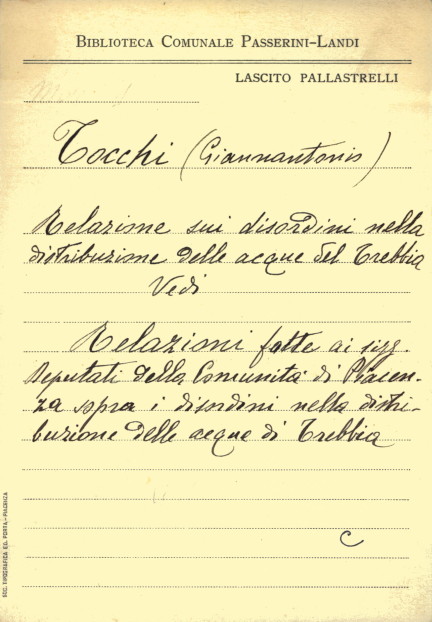 BIBLIOTECA COMUNALE PASSERINI-LANDI
LASCITO PALLASTRELLI
Tocchi (Giannantonio)
Relazione sui disordini nella
distribuzione delle acque del Trebbia
Vedi
Relazioni fatte ai sigg.
Deputati della Comunità di Piacen-
za sopra i disordini nella distri-
buzione delle acque di Trebbia
C
SOC. TIPOGRAFICA ED. PORTA - PIACENZA